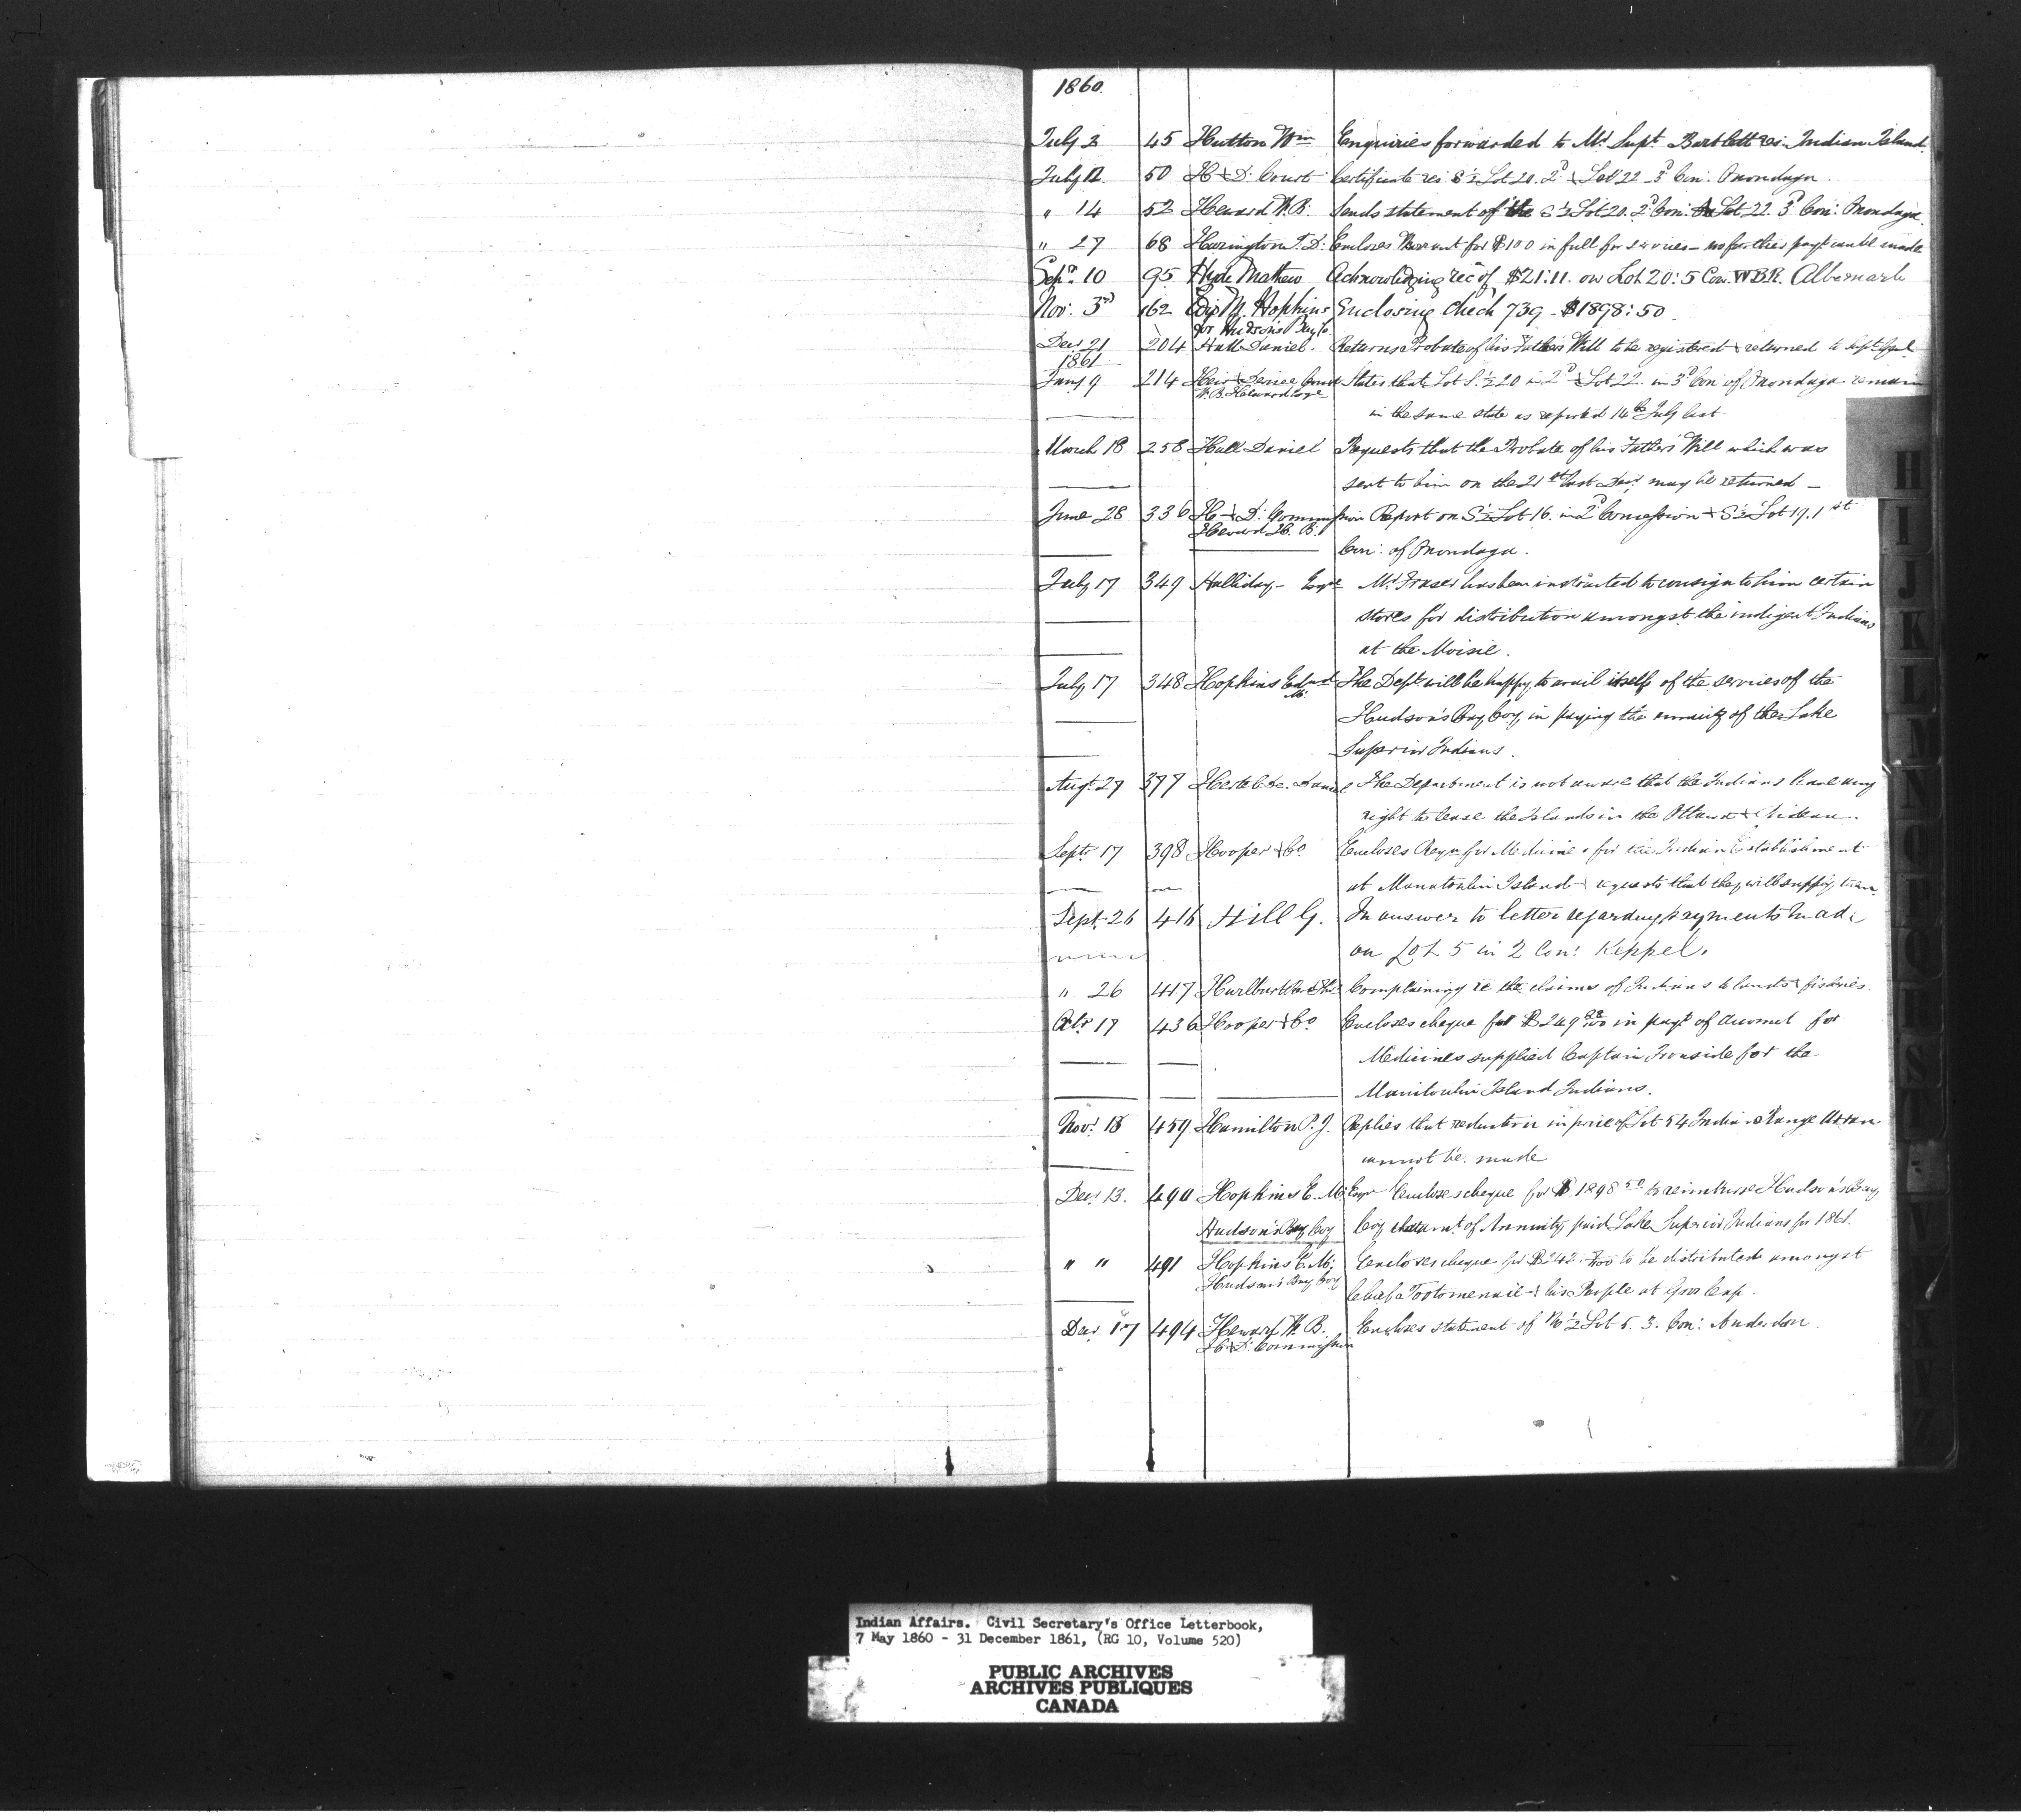 1860.
July 2 45 Hutton Wm Enquiries forwarded to Mr Supt Bartlett re: Indian Island.
July 12 50 H & D: Court Certificate re: S ½ Lot 20. 2d & Lot 22 - 3d Con: Onondaga.
" 14 52 Heward W. B. Sends statement of the S ½ Lot 20. 2d Con: & Lot 22. 3d Con: Onondaga.
" 27 68 Harington T. D: Encloses Warrant for $100 in full for services - no further payt can be made
Sepr. 10 95 Hyde Mathew Acknowledging rec of $21:11. on Lot 20: 5 Con. W.B.R. Albemarle
Nov: 3rd 162 Edw M. Hopkins Enclosing Check 739 - $1898:50
for Hudson's Bay Co
Decr 21 204 Hall Daniel. Returns Probate of his Father's Will to be registered & returned to
1861
Jany 9 214 Heir & Devisee Court States that Lot S. ½ 20 in 2d & Lot 22. in 3d Con of Onondaga remain
W. B. Heward Esqe
in the same state as reported 14th July last
March 18 258 Hall Daniel Requests that the Probate of his Father's Will which was
sent to him on the 21st last Decr may be returned -
June 28 336 H & D: Commission Report on S ½ Lot 16. in 2d Concession & S ½ Lot 19. 1st
Heward W. B.
Con: of Onondaga.
July 17 349 Halliday - Esqre Mr. Fraser has been instructed to consign to him certain
stores for distribution amongst the indigent Indians
at the Moisie.
July 17 348 Hopkins Edward The Dept will be happy to avail itself of the services of the
M.
Hudson's Bay Coy in paying the annuity of the Lake
Superior Indians.
Augt. 27 377 Daniel The Department is not aware that the Indians have any
right to lease the Islands in the Ottawa & Rideau.
Septr 17 398 Hooper & Co. Encloses Reqn for Medicines for the Indian Establishment
at Manatoulin Island & requests that they will supply them.
Sept. 26 416 Hill G. In answer to letter regarding payments made
on Lot 5 in 2 Con: Keppel.
" 26 417 Hurlburt Complaining re the claims of Indians to lands & fisheries.
Octr 17 436 Hooper & Co. Encloses cheque for $249 in payt of account for
Medicines supplied Captain Ironside for the
Manitoulin Island Indians.
Novr. 18 459 Hamilton P. J. Replies that reduction in price of Lot 54 Indian Range Arran
cannot be made
Decr 13. 490 Hopkins E. M. Esqr Encloses cheque for $1898 50 to reimburse Hudson's Bay
Hudson's Bay Coy Coy amount of Annuity paid Lake Superior Indians for 1861.
" " 491 Hopkins E. M; Encloses cheque for $242. to be distributed amongst
Hudson's Bay Coy
Chief Totomenaie & his People at Gros Cap.
Decr 17 494 Heward W. B. Encloses statement of N ½ Lot 5. 3. Con: Anderdon.
H & D: Commission
H
I
J
K
L
M
N
O
P
Q
R
S
T
V
Y
Z
Indian Affairs. Civil Secretary's Office Letterbook,
7 May 1860 - 31 December 1861, (RG 10, Volume 520)
PUBLIC ARCHIVES
ARCHIVES PUBLIQUES
CANADA